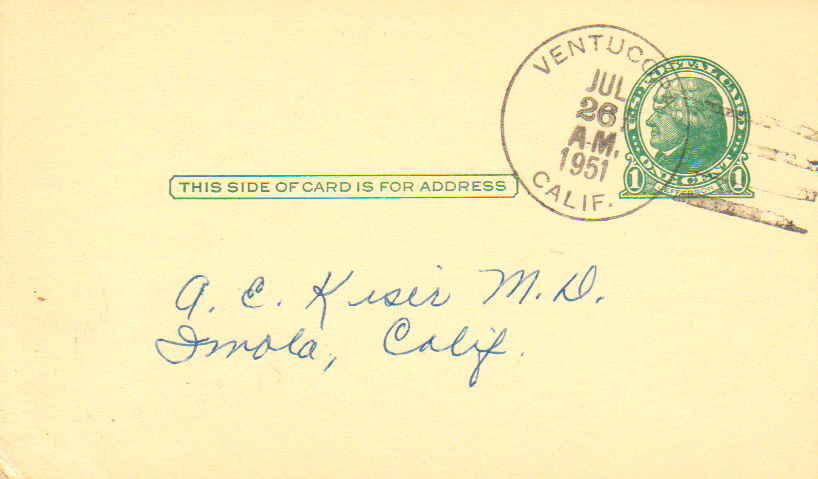 VENTUCOPA
JUL
26
A.M.
1951
CALIF.
U.S. POSTAL CARD
ONE CENT
1 JEFFERSON 1
THIS SIDE OF CARD IS FOR ADDRESS
A. E. Kiser M.D.
Imola, Calif.